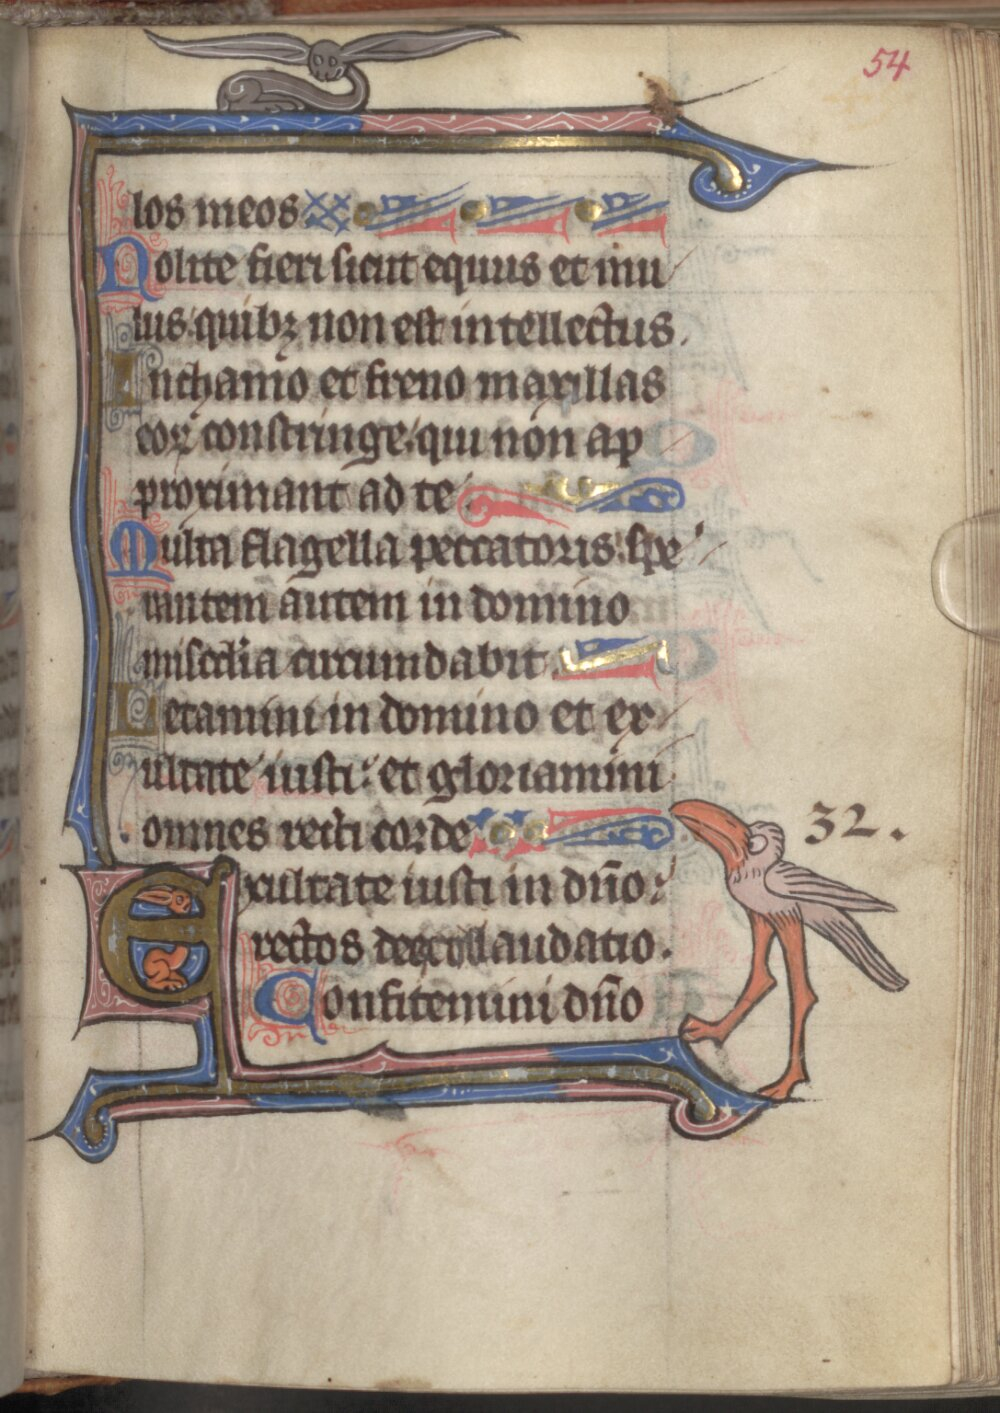 54
los meos
Nolite fieri sicut equus et mu
lus quibꝫ non est intellectus.
In chamo et freno maxillas
eoꝝ constringe qui non ap
proximant ad te
Multa flagella peccatoris: spe
rantem autem in domino
misericordia circumdabit.
Letamini in domino et ex
ultate iusti: et gloriamini
omnes recti corde
32.
Exultate iusti in dño:
rectos decet collaudatio.
Confitemini dño